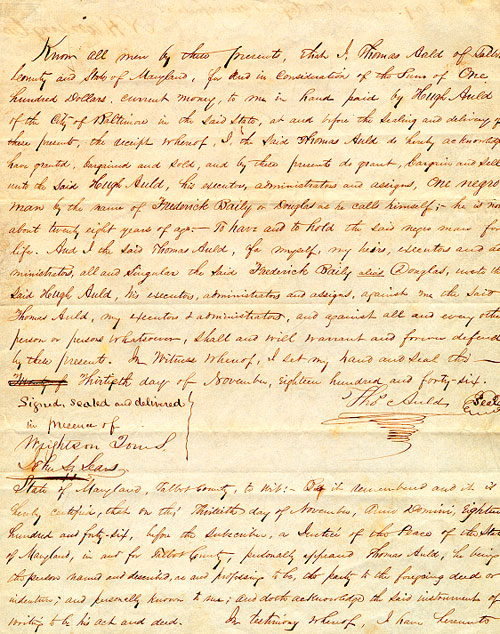 Know all men by these presents, that I, Thomas Auld of Talbo
County and State of Maryland, for and in Consideration of the Sum of One
hundred Dollars, current money, to me in hand paid by Hough Auld
of the City of Baltimore in the said State, at and before the Sealing and delivery of
these presents, the receipt whereof, I, the Said Thomas Auld do hereby acknowledge
have granted, bargained and Sold, and by these presents do grant, bargain and Sell
unto the Said Hough Auld, his executors, administrators and assigns, One negro
man by the name of Frederick Baily or Douglas as he calls himself;- he is now
about twenty eight years of age- To have and to hold the said negro man for
life. And I the said Thomas Auld, for myself, my heirs, executors and ad
ministrators, all and Singular the Said Frederick Baily alias Douglas, unto the
Said Hough Auld, his executors, administrators and assigns, against me the Said
Thomas Auld, my executors & administrators, and against all and every othe
person or persons whatsoever, Shall and will warrant and forever defend
by these presents. In Witness whereof, I set my hand and Seal this
Thirtieth day of November, eighteen hundred and forty-six.
Signed, sealed and delivered
Thos Auld Seal
in presence of
Wrightson Jones
John C. Lears
State of Maryland, Talbot County, to wit:- Be it remembered and it is
hereby certified, that on this Thirtieth day of November, Anno Domini, Eighteen
hundred and forty-six, before the subscriber, a Justice of the Peace of the State
of Maryland, in and for Talbot County, personally appeared Thomas Auld, he being
the person named and described, as and professing to be, the party to the foregoing deed or
indenture; and personally known to me; and doth acknowledge the said instrument of
writing to be his act and deed. In testimony whereof, I have hereunto